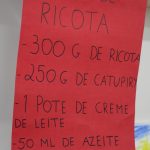 DE
RICOTA
-300 G DE RICOTA
-250 G DE CATUPIRY
-1 POTE DE CREME
DE LEITE
-50 ML DE AZEITE